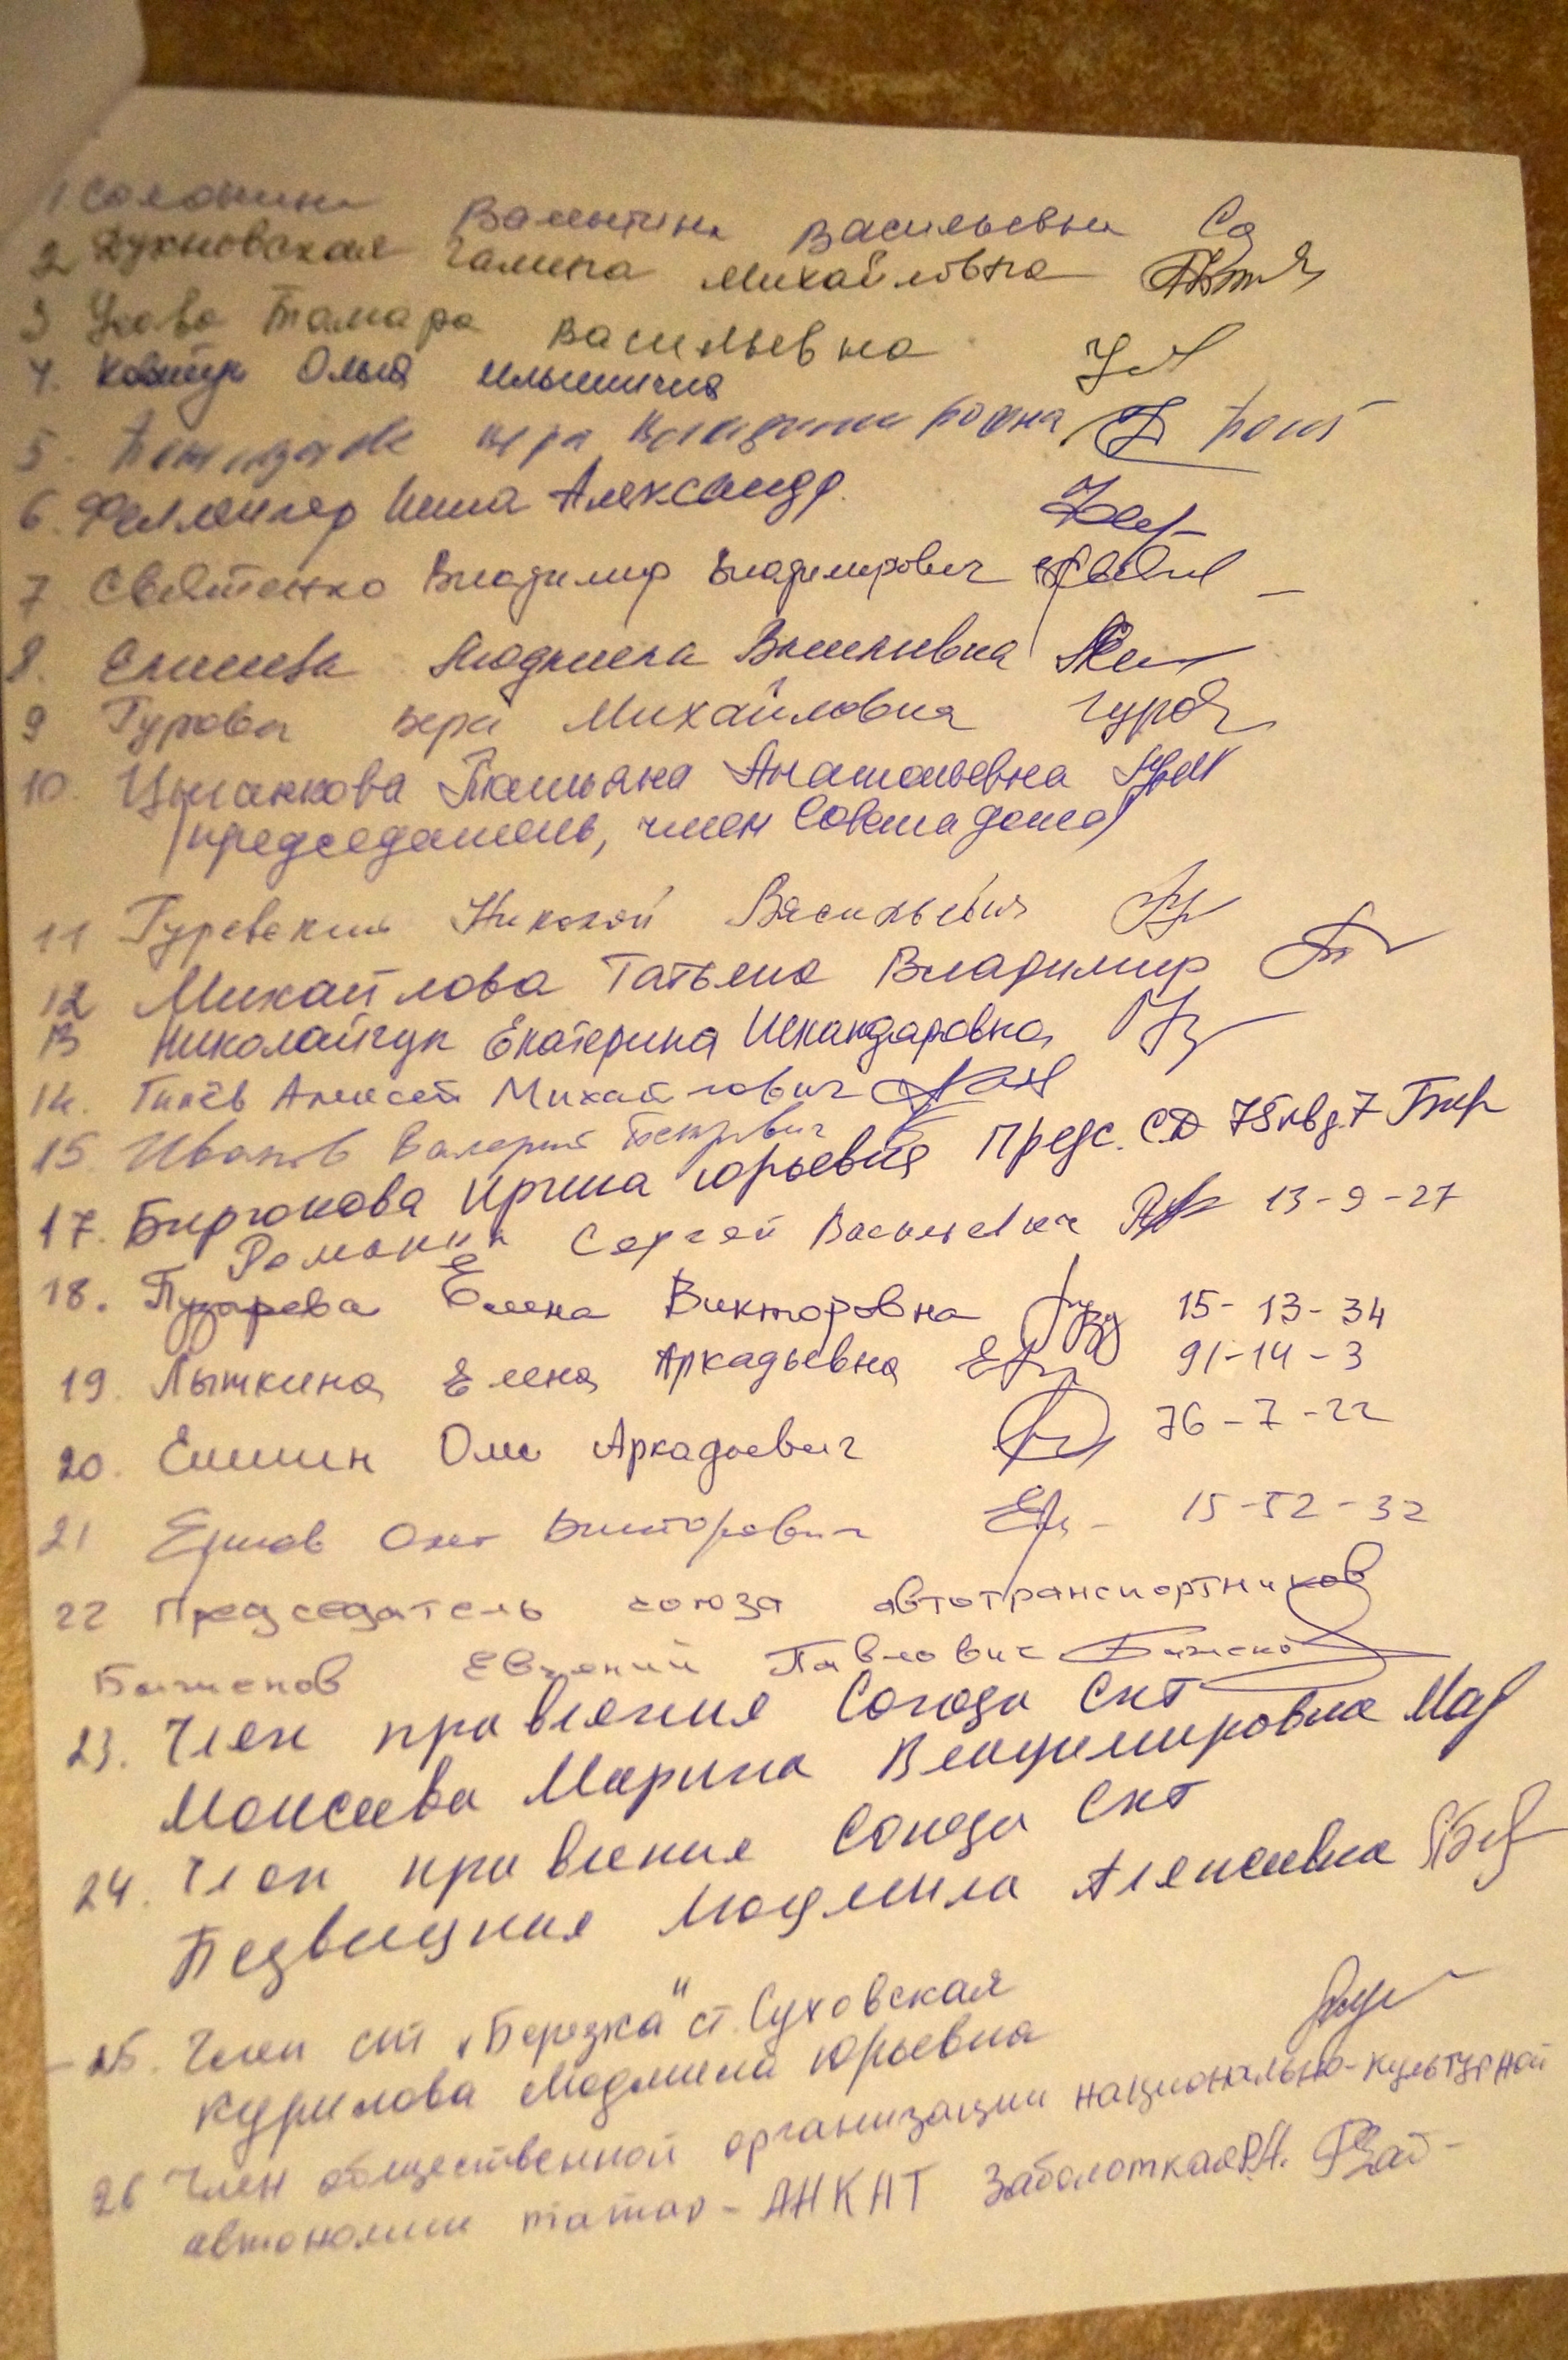 1 Солонина Валентина Васильевна
2 Духновская Галина Михайловна
3 Усова Тамара Васильевна
4. Ковтун Ольга Ильинична
5. Вера
6. Феллингер Нина Александр.
7 Святенко Владимир Владимирович
8. Елисеева Людмила Васильевна
9 Гурова Вера Михайловна Гуров
10. Цыганкова Татьяна Анатольевна
(председатель, член Совета дома)
11 Гуревский Николай Васильевич
12 Михайлова Татьяна Владимир
13 Николайчук Екатерина Искандаровна
14. Алексей Михайлович
15. Иванов Валерий Петрович
17. Бирюкова Ирина Юрьевна Предс. СД 75 кв д.7 Бир
Романин Сергей Васильевич 13-9-27
18. Пузарева Елена Викторовна 15-13-34
19. Лыткина Елена Аркадьевна 91-14-3
20. Ешин Олег Аркадьевич 76-7-22
21 Ершов Олег Викторович 15-52-32
22 Председатель союза автотранспортников
Баженов Евгений Павлович
23. Член правления Союза СНТ
Моисеева Марина Владимировна
24. Член правления Союза СНТ
Людмила Алексеевна
25. Член снт „Березка" ст. Суховская
Курилова Людмила Юрьевна
26 Член общественной организации национально-культурной
автономии татар - АНКАТ Заболоткая